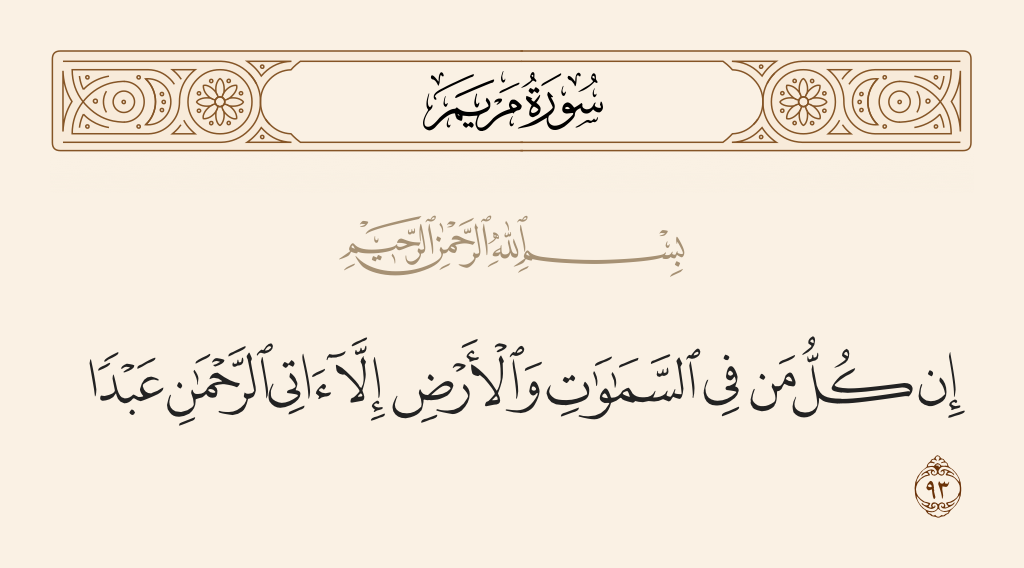 سُورَةُ مَرْيَمَ
بِسْمِ ٱللَّهِ ٱلرَّحْمَٰنِ ٱلرَّحِيمِ
إِن كُلُّ مَن فِى ٱلسَّمَٰوَٰتِ وَٱلْأَرْضِ إِلَّآ ءَاتِى ٱلرَّحْمَٰنِ عَبْدًا
٩٣